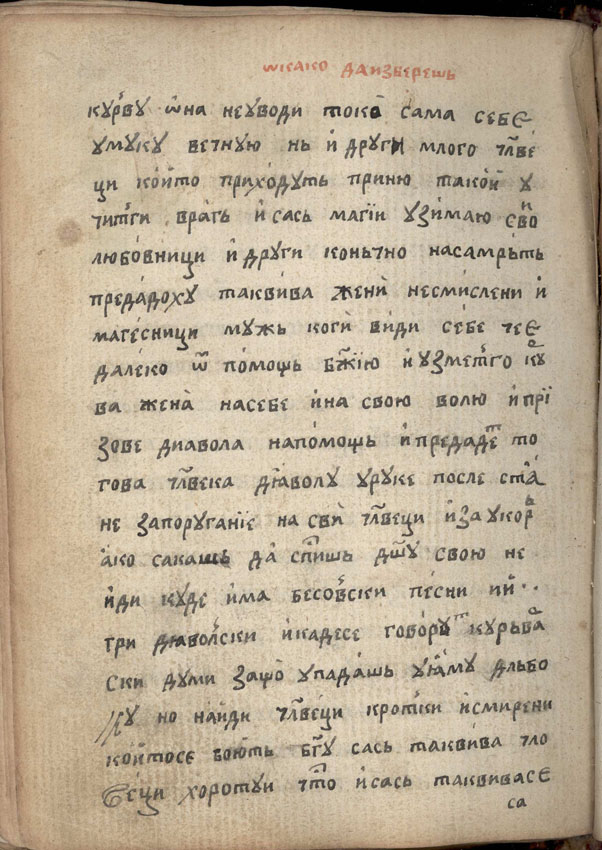 ѡкако да изберешь
курву ѡна неуводи токо сама себе
умуку вечную нь и други млого члве
ци който приходуть при ню такой у
читги врагь и сась магїи узимаю свои
любовници и други коньчно насамрьть
предадоху таквива жени несмислени и
магесници мужь коги види себе че є
далеко ѿ помощь бжїю и узметго кур
ва жена насебе и на свою волю и прї
зове диавола напомощь и предадет то
гова члвека дїаволу уруке после ста
не запоруганїе на сви члвеци и за укор
ако сакашь да спишь дшу свою не
иди куде има бесовски песни и
три дїаволски и кадесе говору курьва
ски думи защо упадашь уяму дльбо
ку но найди члвеци кротки и смирени
коитосе боють бгу сась таквива чло
веци хоротуи что и сась таквивасе
са